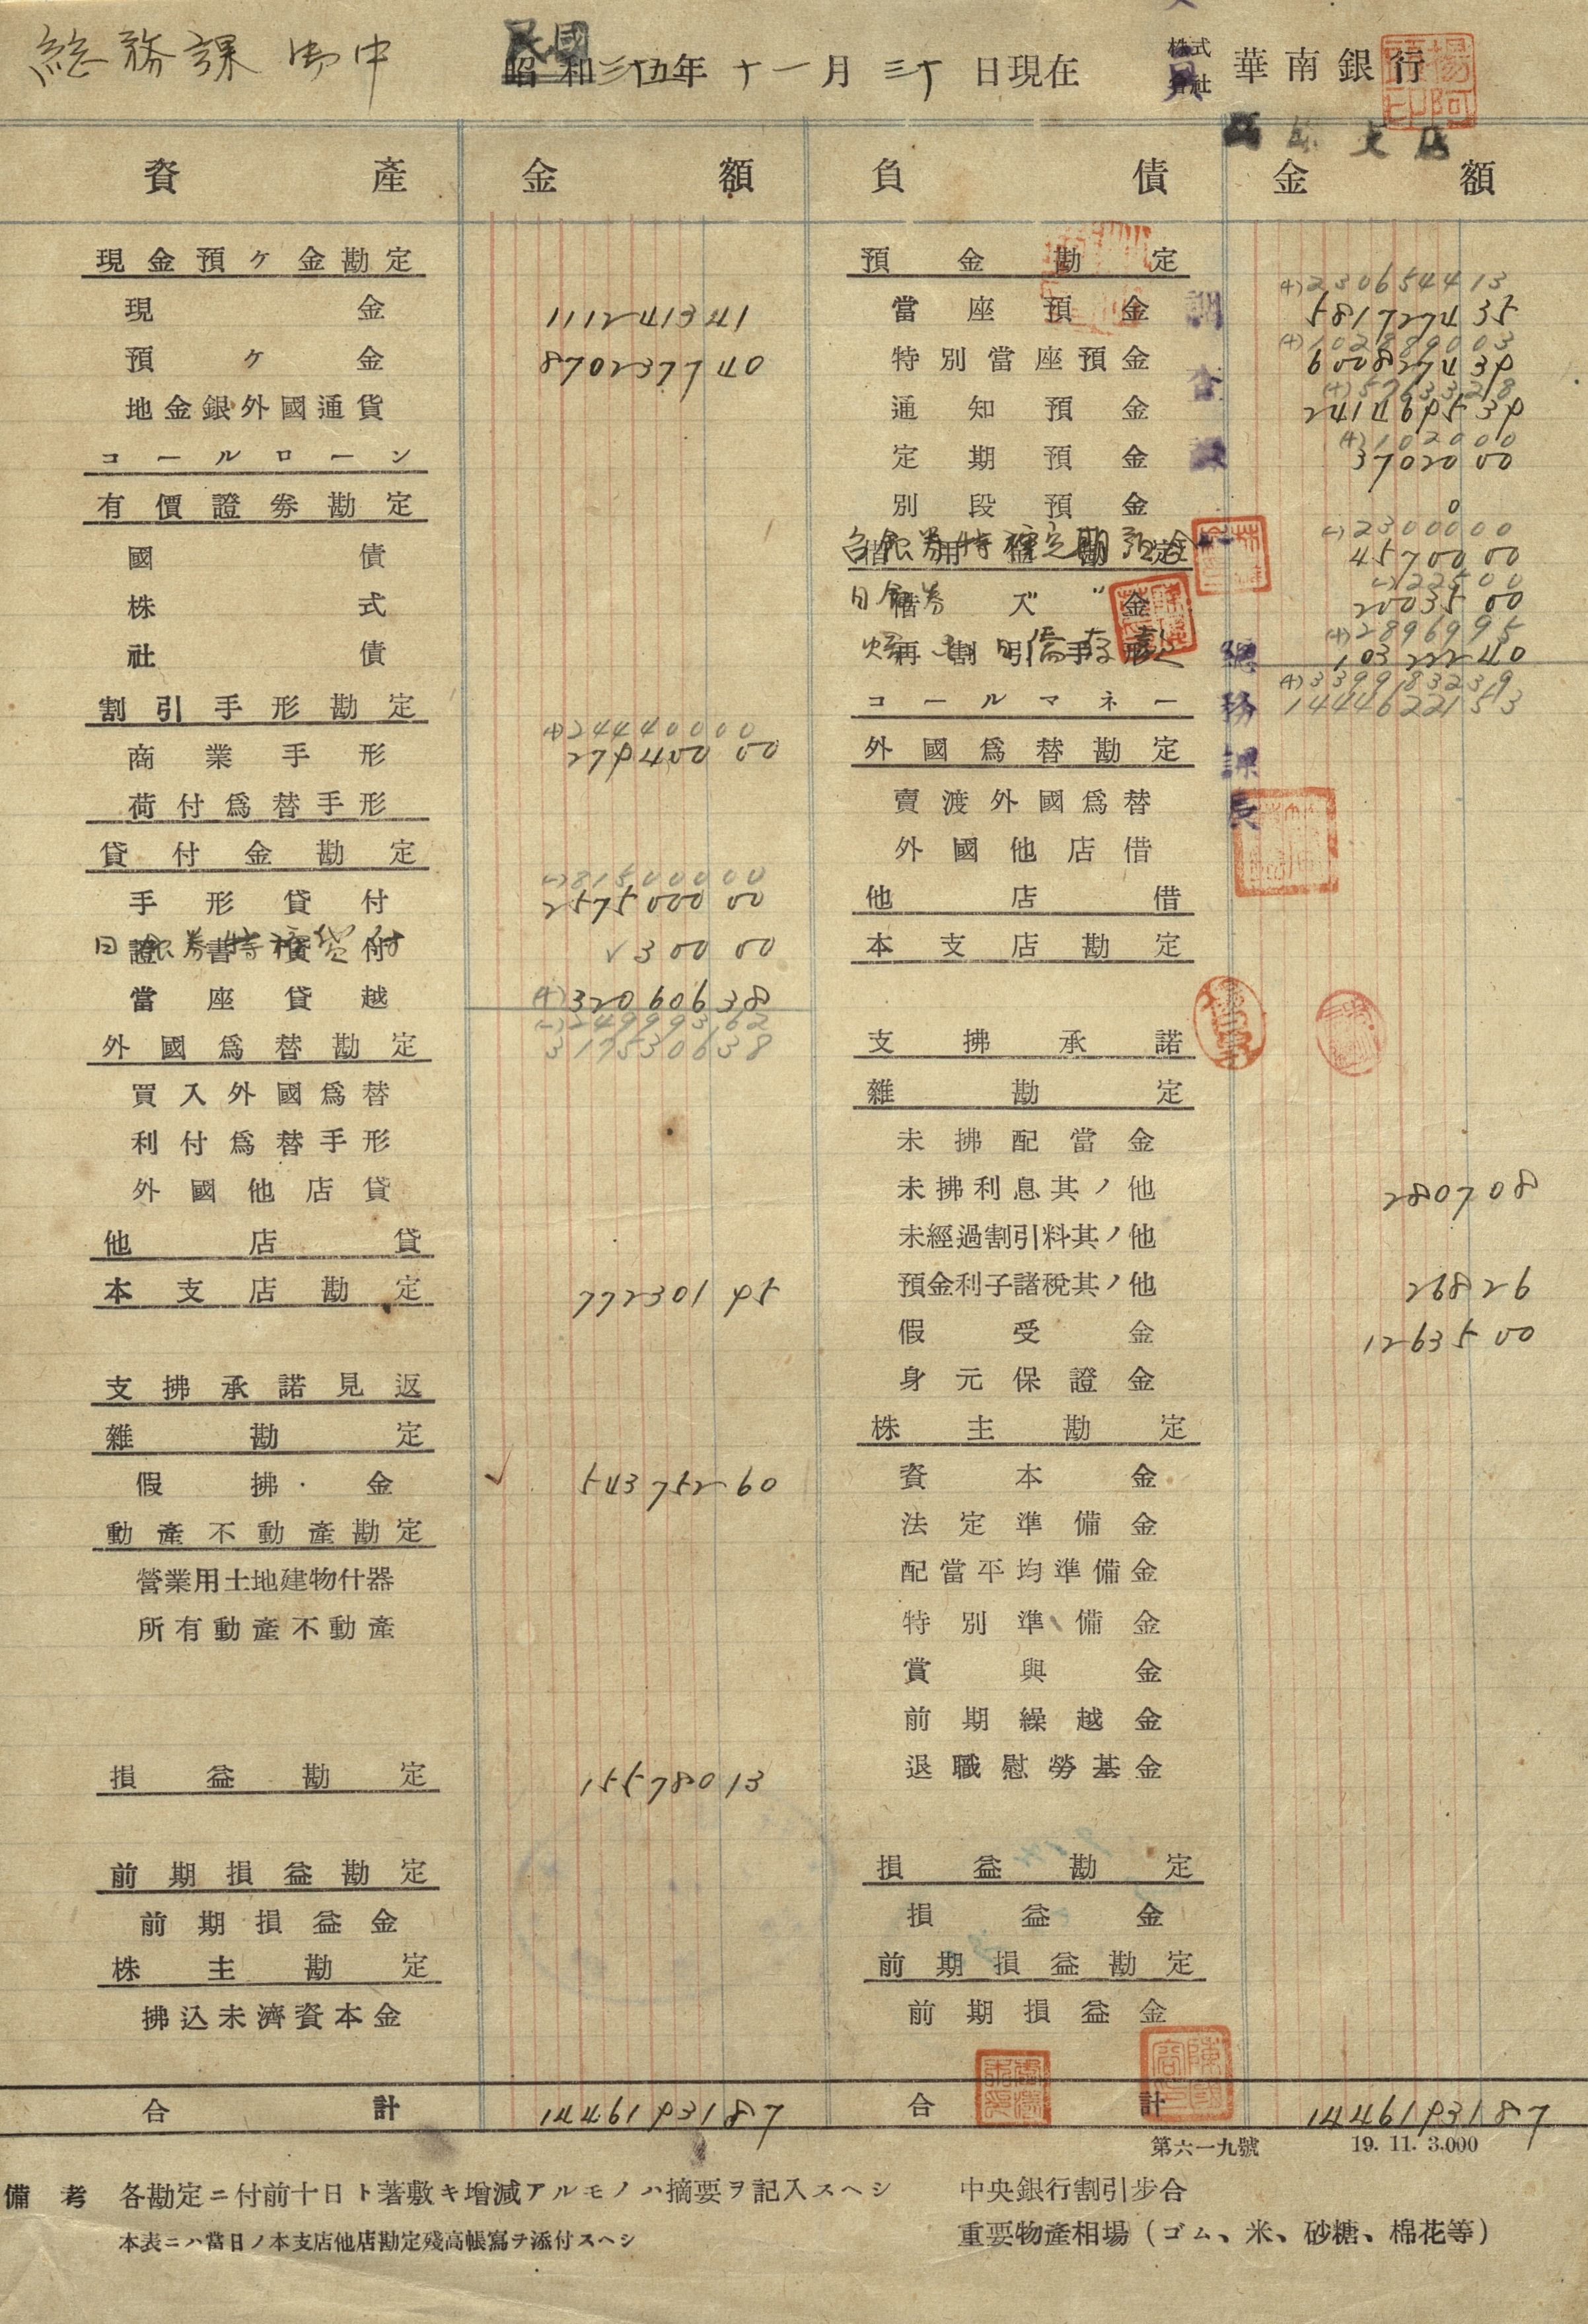 總務課 御中
民國
昭和三十五年 十一月 三十 日現在
株式會社 華南銀行
支店
資產 金額 負債 金額
現金預ヶ金勘定
現金 1112413 41
預ヶ金 8702377 40
地金銀外國通貨
コールローン
有價證券勘定
國債
株式
社債
割引手形勘定
(+)244400 00
商業手形 279400 00
荷付爲替手形
貸付金勘定
(-)815000 00
手形貸付 2575000 00
證書貸付 300 00
當座貸越 (+)320606 38
(-)249993 62
3175306 38
外國爲替勘定
買入外國爲替
利付爲替手形
外國他店貸
他店貸
本支店勘定 772301 95
支拂承諾見返
雜勘定
假拂金 543752 60
動產不動產勘定
營業用土地建物什器
所有動產不動產
損益勘定 155780 13
前期損益勘定
前期損益金
株主勘定
拂込未濟資本金
合計 14461931 87
預金勘定
(+)2306544 13
當座預金 5817274 35
(+)1028890 03
特別當座預金 6008274 39
(+)57633 28
通知預金 2414695 39
(+)1020 00
定期預金 37020 00
別段預金 0
(-)23000 00
借用金勘定 45700 00
(-)225 00
借入金 20035 00
(+)28969 95
再割引手形 103222 40
(+)3399832 39
14446221 53
コールマネー
外國爲替勘定
賣渡外國爲替
外國他店借
他店借
本支店勘定
支拂承諾
雜勘定
未拂配當金
未拂利息其ノ他 2807 08
未經過割引料其ノ他
預金利子諸稅其ノ他 268 26
假受金 12635 00
身元保證金
株主勘定
資本金
法定準備金
配當平均準備金
特別準備金
賞與金
前期繰越金
退職慰勞基金
損益勘定
損益金
前期損益勘定
前期損益金
合計 14461931 87
總務課長
第六一九號 19. 11. 3.000
備考 各勘定ニ付前十日ト著敷キ增減アルモノハ摘要ヲ記入スヘシ
本表ニハ當日ノ本支店他店勘定殘高帳寫ヲ添付スヘシ
中央銀行割引步合
重要物產相場（ゴム、米、砂糖、棉花等）